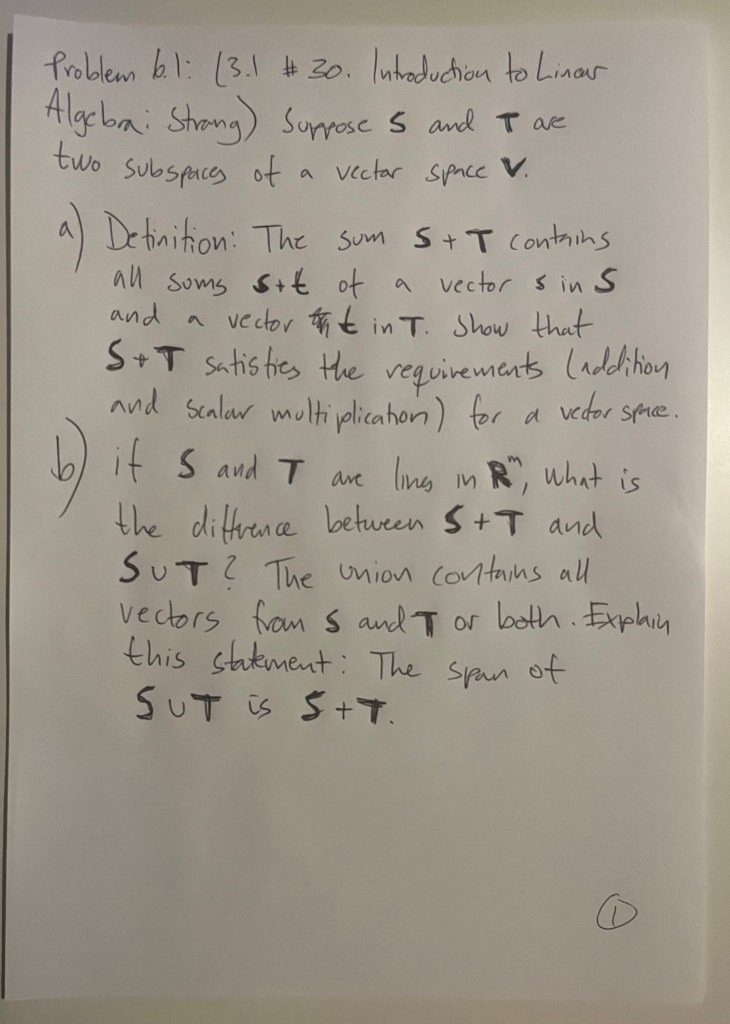 Problem 6.1: (3.1 # 30. Introduction to Linear
Algebra: Strang) Suppose S and T are
two subspaces of a vector space V.
a) Definition: The sum S + T contains
all sums s+t of a vector s in S
and a vector t in T. Show that
S + T satisfies the requirements (addition
and scalar multiplication) for a vector space.
b) if S and T are lines in Rᵐ, what is
the diffrence between S + T and
S ∪ T? The union contains all
vectors from S and T or both. Explain
this statement: The span of
S ∪ T is S + T.
1